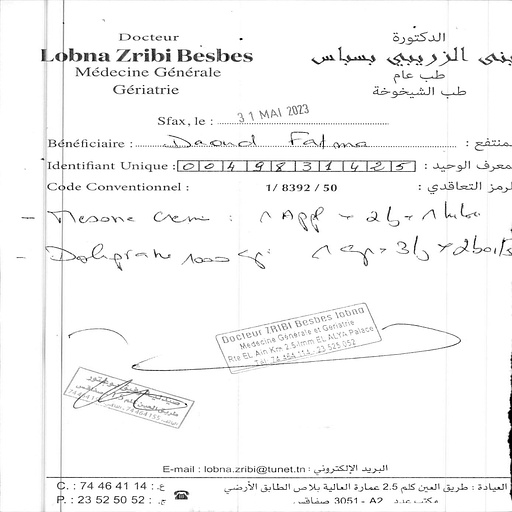 Docteur
Lobna Zribi Besbes
Médecine Générale
Gériatrie
الدكتورة
بنى الزريبي بسباس
طب عام
طب الشيخوخة
Sfax, le : 31 MAI 2023
Bénéficiaire : Daoud Fatma : منتفع
Identifiant Unique : 004983 1425 : معرف الوحيد
Code Conventionnel : 1/ 8392 / 50 : لرمز التعاقدي
- Mesone creme : 1 App × 2/j
- Doliprane 1000 1 × 3/j × 2 boites
Docteur ZRIBI Besbes lobna
Médecine Générale et Gériatrie
Rte EL Ain Km 2.5 Imm EL ALYA Palace
Tél. 74 464 114 - 23 525 052
E-mail : lobna.zribi@tunet.tn : البريد الإلكتروني
C. : 74 46 41 14 : ع.
P. : 23 52 50 52 : ج.
العيادة : طريق العين كلم 2.5 عمارة العالية بلاص الطابق الأرضي
مكتب عدد A2 - 3051 صفاقس